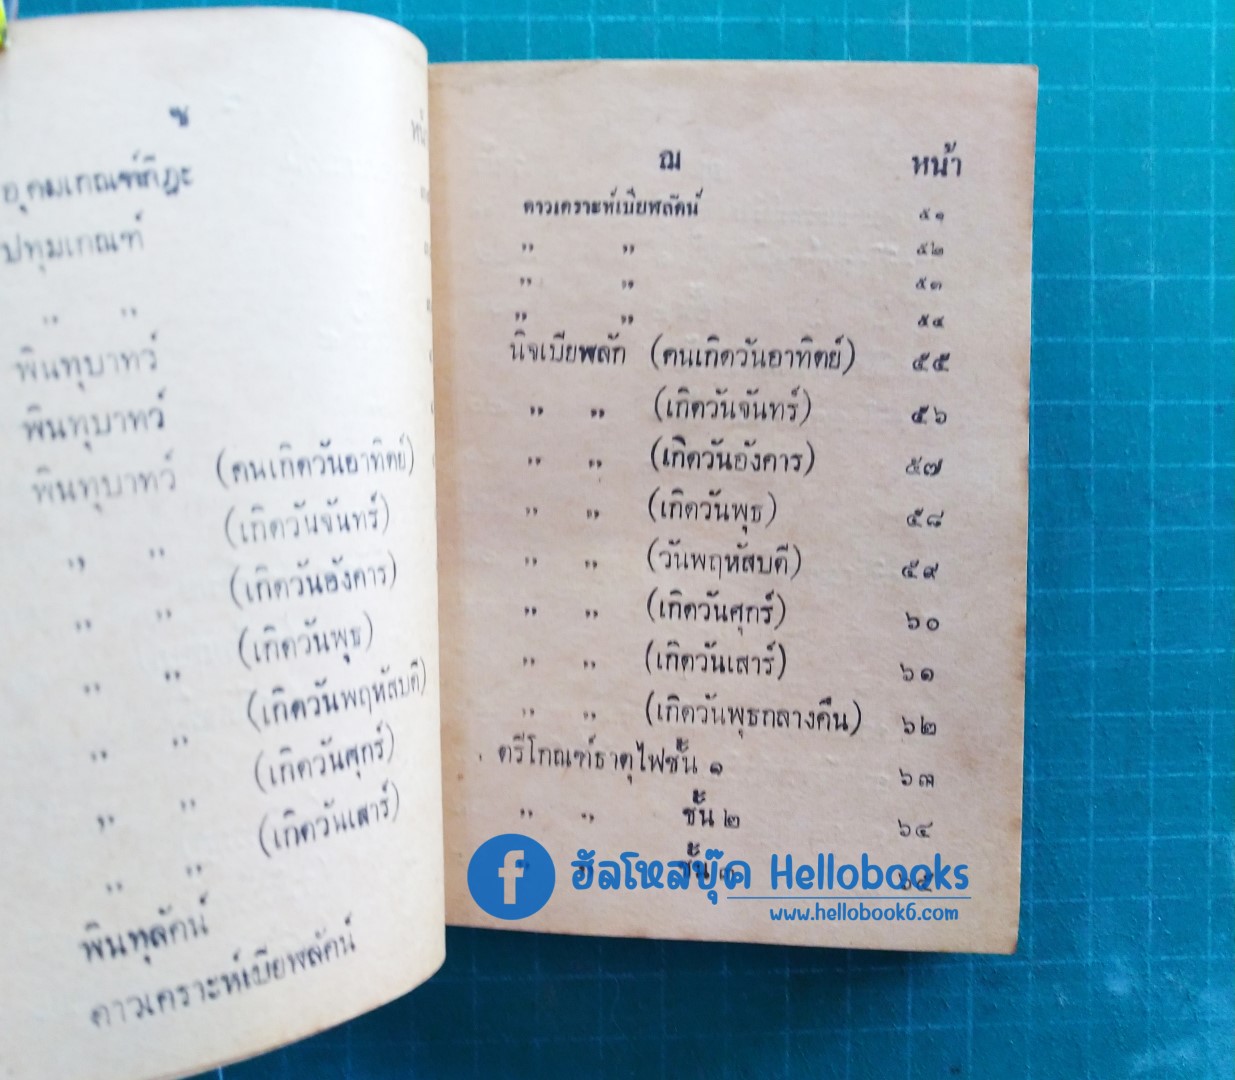 ซ
อุดมเกณฑ์กิฏะ
ปทุมเกณฑ์
,, ,,
พินทุบาทว์
พินทุบาทว์
พินทุบาทว์ (คนเกิดวันอาทิตย์)
,, ,, (เกิดวันจันทร์)
,, ,, (เกิดวันอังคาร)
,, ,, (เกิดวันพุธ)
,, ,, (เกิดวันพฤหัสบดี)
,, ,, (เกิดวันศุกร์)
,, ,, (เกิดวันเสาร์)
พินทุลัคน์
ดาวเคราะห์เบียฬลัคน์
ฌ หน้า
ดาวเคราะห์เบียฬลัคน์ ๕๑
,, ,, ๕๒
,, ,, ๕๓
,, ,, ๕๔
นิจเบียฬลัก (คนเกิดวันอาทิตย์) ๕๕
,, ,, (เกิดวันจันทร์) ๕๖
,, ,, (เกิดวันอังคาร) ๕๗
,, ,, (เกิดวันพุธ) ๕๘
,, ,, (วันพฤหัสบดี) ๕๙
,, ,, (เกิดวันศุกร์) ๖๐
,, ,, (เกิดวันเสาร์) ๖๑
,, ,, (เกิดวันพุธกลางคืน) ๖๒
ตรีโกณฑ์ธาตุไฟชั้น ๑ ๖๓
,, ,, ชั้น ๒ ๖๔
,, ,, ชั้น ๓ ๖๕
ฮัลโหลบุ๊ค Hellobooks
www.hellobook6.com